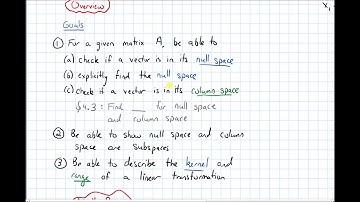 Overview
X₁
Goals
① For a given matrix A, be able to
(a) check if a vector is in its null space
(b) explicitly find the null space
(c) check if a vector is in its column space
§4.3: Find ___ for null space
and column space
② Be able to show null space and column
space are subspaces
③ Be able to describe the kernel and
range of a linear transformation